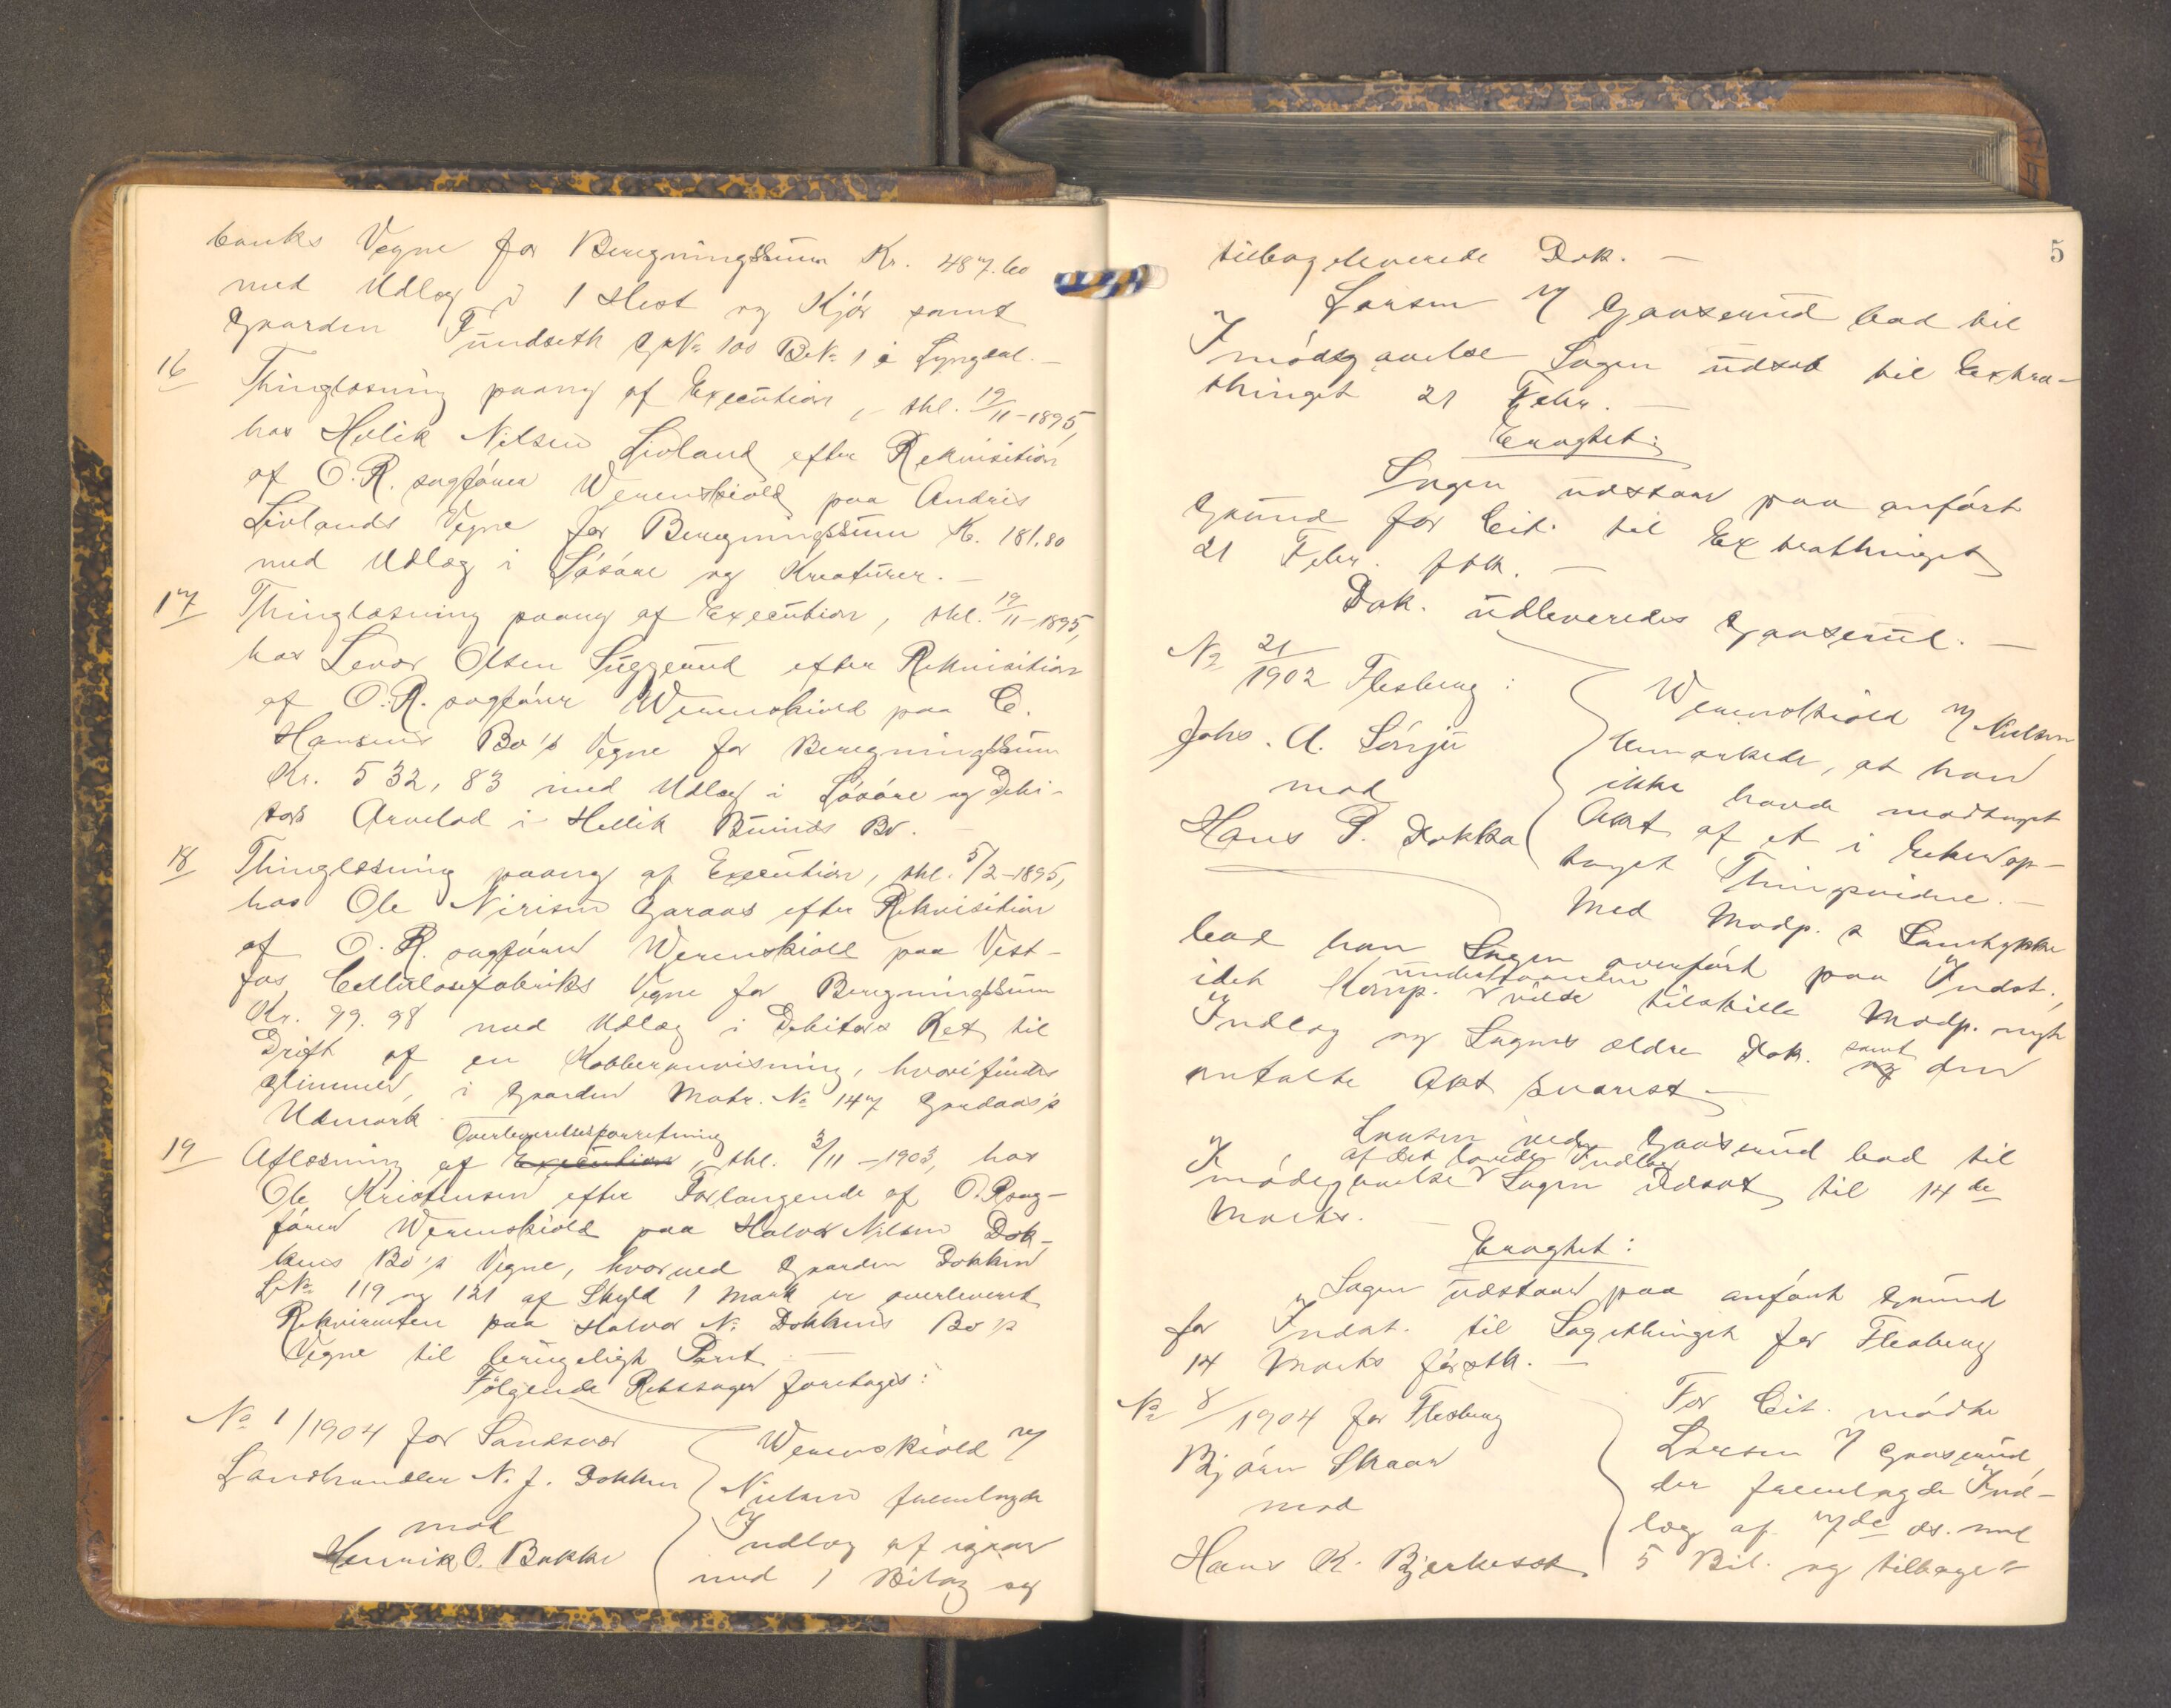 banks Vegne for Beregningssum Kr. 487.60
med Udlæg i 1 Hest og Kjør samt
Gaarden Fundseth GNo 100 BNo 1 i Lyngdal. –
16 Thinglæsning paany af Execution, thl. 19/11–1895,
hos Helik Nilsen Livland efter Rekvisition
af O.R. sagfører Werenskiold paa Andris
Livlands Vegne for Beregningssum Kr. 181.80
med Udlæg i Løsøre og Kreaturer. –
17 Thinglæsning paany af Execution, thl. 19/11–1895,
hos Levor Olsen Suggerud efter Rekvisition
af O.R. sagfører Werenskiold paa C.
Hansens Bo's Vegne for Beregningssum
Kr. 532,83 med Udlæg i Løsøre og Debi-
tors Arvelod i Hellik Buinds Bo. –
18 Thinglæsning paany af Execution, thl. 5/2–1895,
hos Ole Nirisen Garaas efter Rekvisition
af O.R. sagfører Werenskiold paa Vest-
fos Cellulosefabriks Vegne for Beregningssum
Kr. 99.98 med Udlæg i Debitors Ret til
Drift af en Kobberanvisning, hvori findes
Glimmer, i Gaarden Matr. No 147 Gardaas's
Udmark
Overleverelsesforretning
19 Aflæsning af Execution, thl. 3/11–1903, hos
Ole Kristensen efter Forlangende af O.R.sag-
fører Werenskiold paa Halvor Nilsen Dok-
kens Bo's Vegne, hvorved Gaarden Dokken
LNo 119 og 121 af Skyld 1 Mark er overleveret
Rekvirenten paa Halvor N. Dokkens Bo's
Vegne til brugeligt Pant –
Følgende Retssager foretages:
No 1/1904 for Sandsvær
Landhandler N. J. Dokken
mod
Henrik O. Bakke
Werenskiold v/
Nielsen fremlagde
Indlæg af igaar
med 1 Bilag og
5
tilbageleverede Dok. –
Larsen v/ Gaaserud bad til
Imødegaaelse Sagen udsat til Extra-
thinget 21 Febr. –
Eragtet:
Sagen udstaar paa anført
Grund for Cit. til Extrathinget
21 Febr. fstk. –
Dok. udleveredes Gaaserud. –
No 21/1902 Flesberg:
Johs. A. Lónju
mod
Hans P. Dokka
Werenskiold v/ Nielsen
bemærkede, at han
ikke havde modtaget
Akt af et i Eker op-
taget Thingsvidne. –
Med Modp.s Samtykke
bad han Sagen overført paa Indst.,
understaaende
idet Komp. vilde tilstille Modp. nyt
Indlæg og Sagens ældre Dok. samt og den
omtalte Akt snarest –
Larsen ved Gaaserud bad til
af det lovede Indlæg
Imødegaaelse Sagen udsat til 14de
Marts. –
Eragtet:
Sagen udstaar paa anført Grund
for Indst. til Sagethinget for Flesberg
14 Marts førstk. –
No 8/1904 for Flesberg
Bjørn Skaar
mod
Hans K. Bjerkeset
For Cit. mødte
Larsen v/ Gaaserud,
der fremlagde Ind-
læg af 7de ds. med
5 Bil. og tilbage=